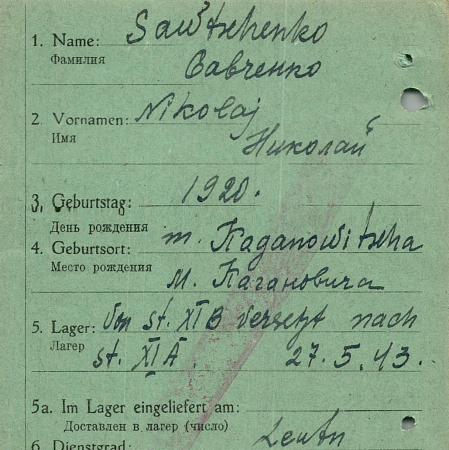 1. Name: Sawtschenko
Фамилия Савченко
2. Vornamen: Nikolaj
Имя Николай
3. Geburtstag: 1920.
День рождения
4. Geburtsort: m. Kaganowitscha
Место рождения м. Кагановича
5. Lager: Von St. XI B versetzt nach
Лагер St. XI A. 27.5.43.
5a. Im Lager eingeliefert am:
Доставлен в лагер (число)
6. Dienstgrad: Leutn